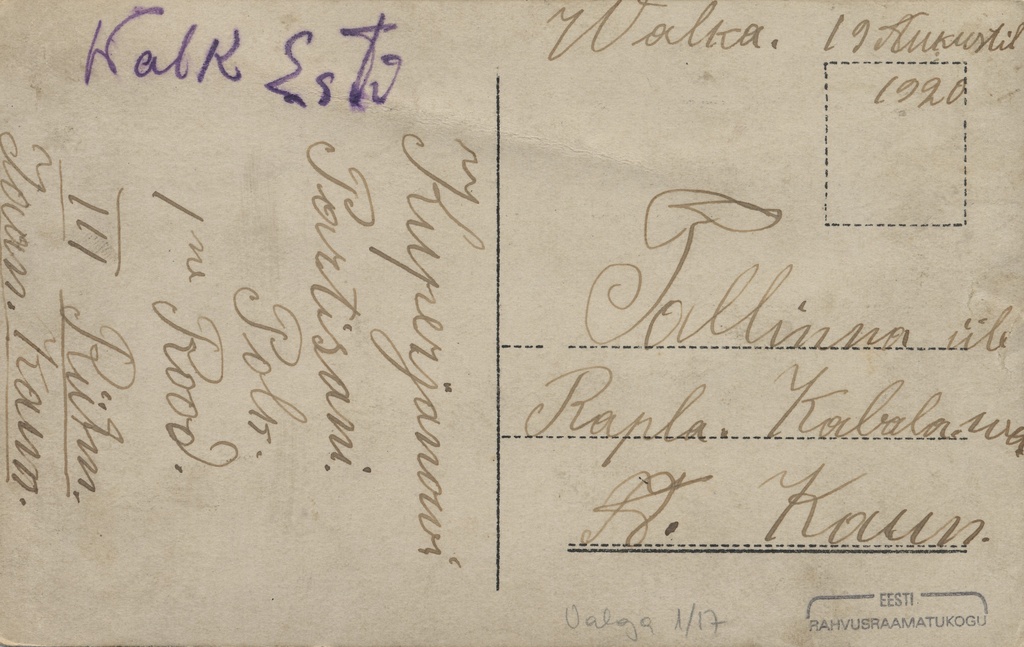 Walk Esto
Walka. 19 Aukustil
1920
Kuperjanowi
Partisani.
Polk.
1 ne Rood.
III Rühm.
Kaun.
Tallinna üle
Rapla. Kabala wa
A. Kaun.
Valga 1/17
EESTI
RAHVUSRAAMATUKOGU